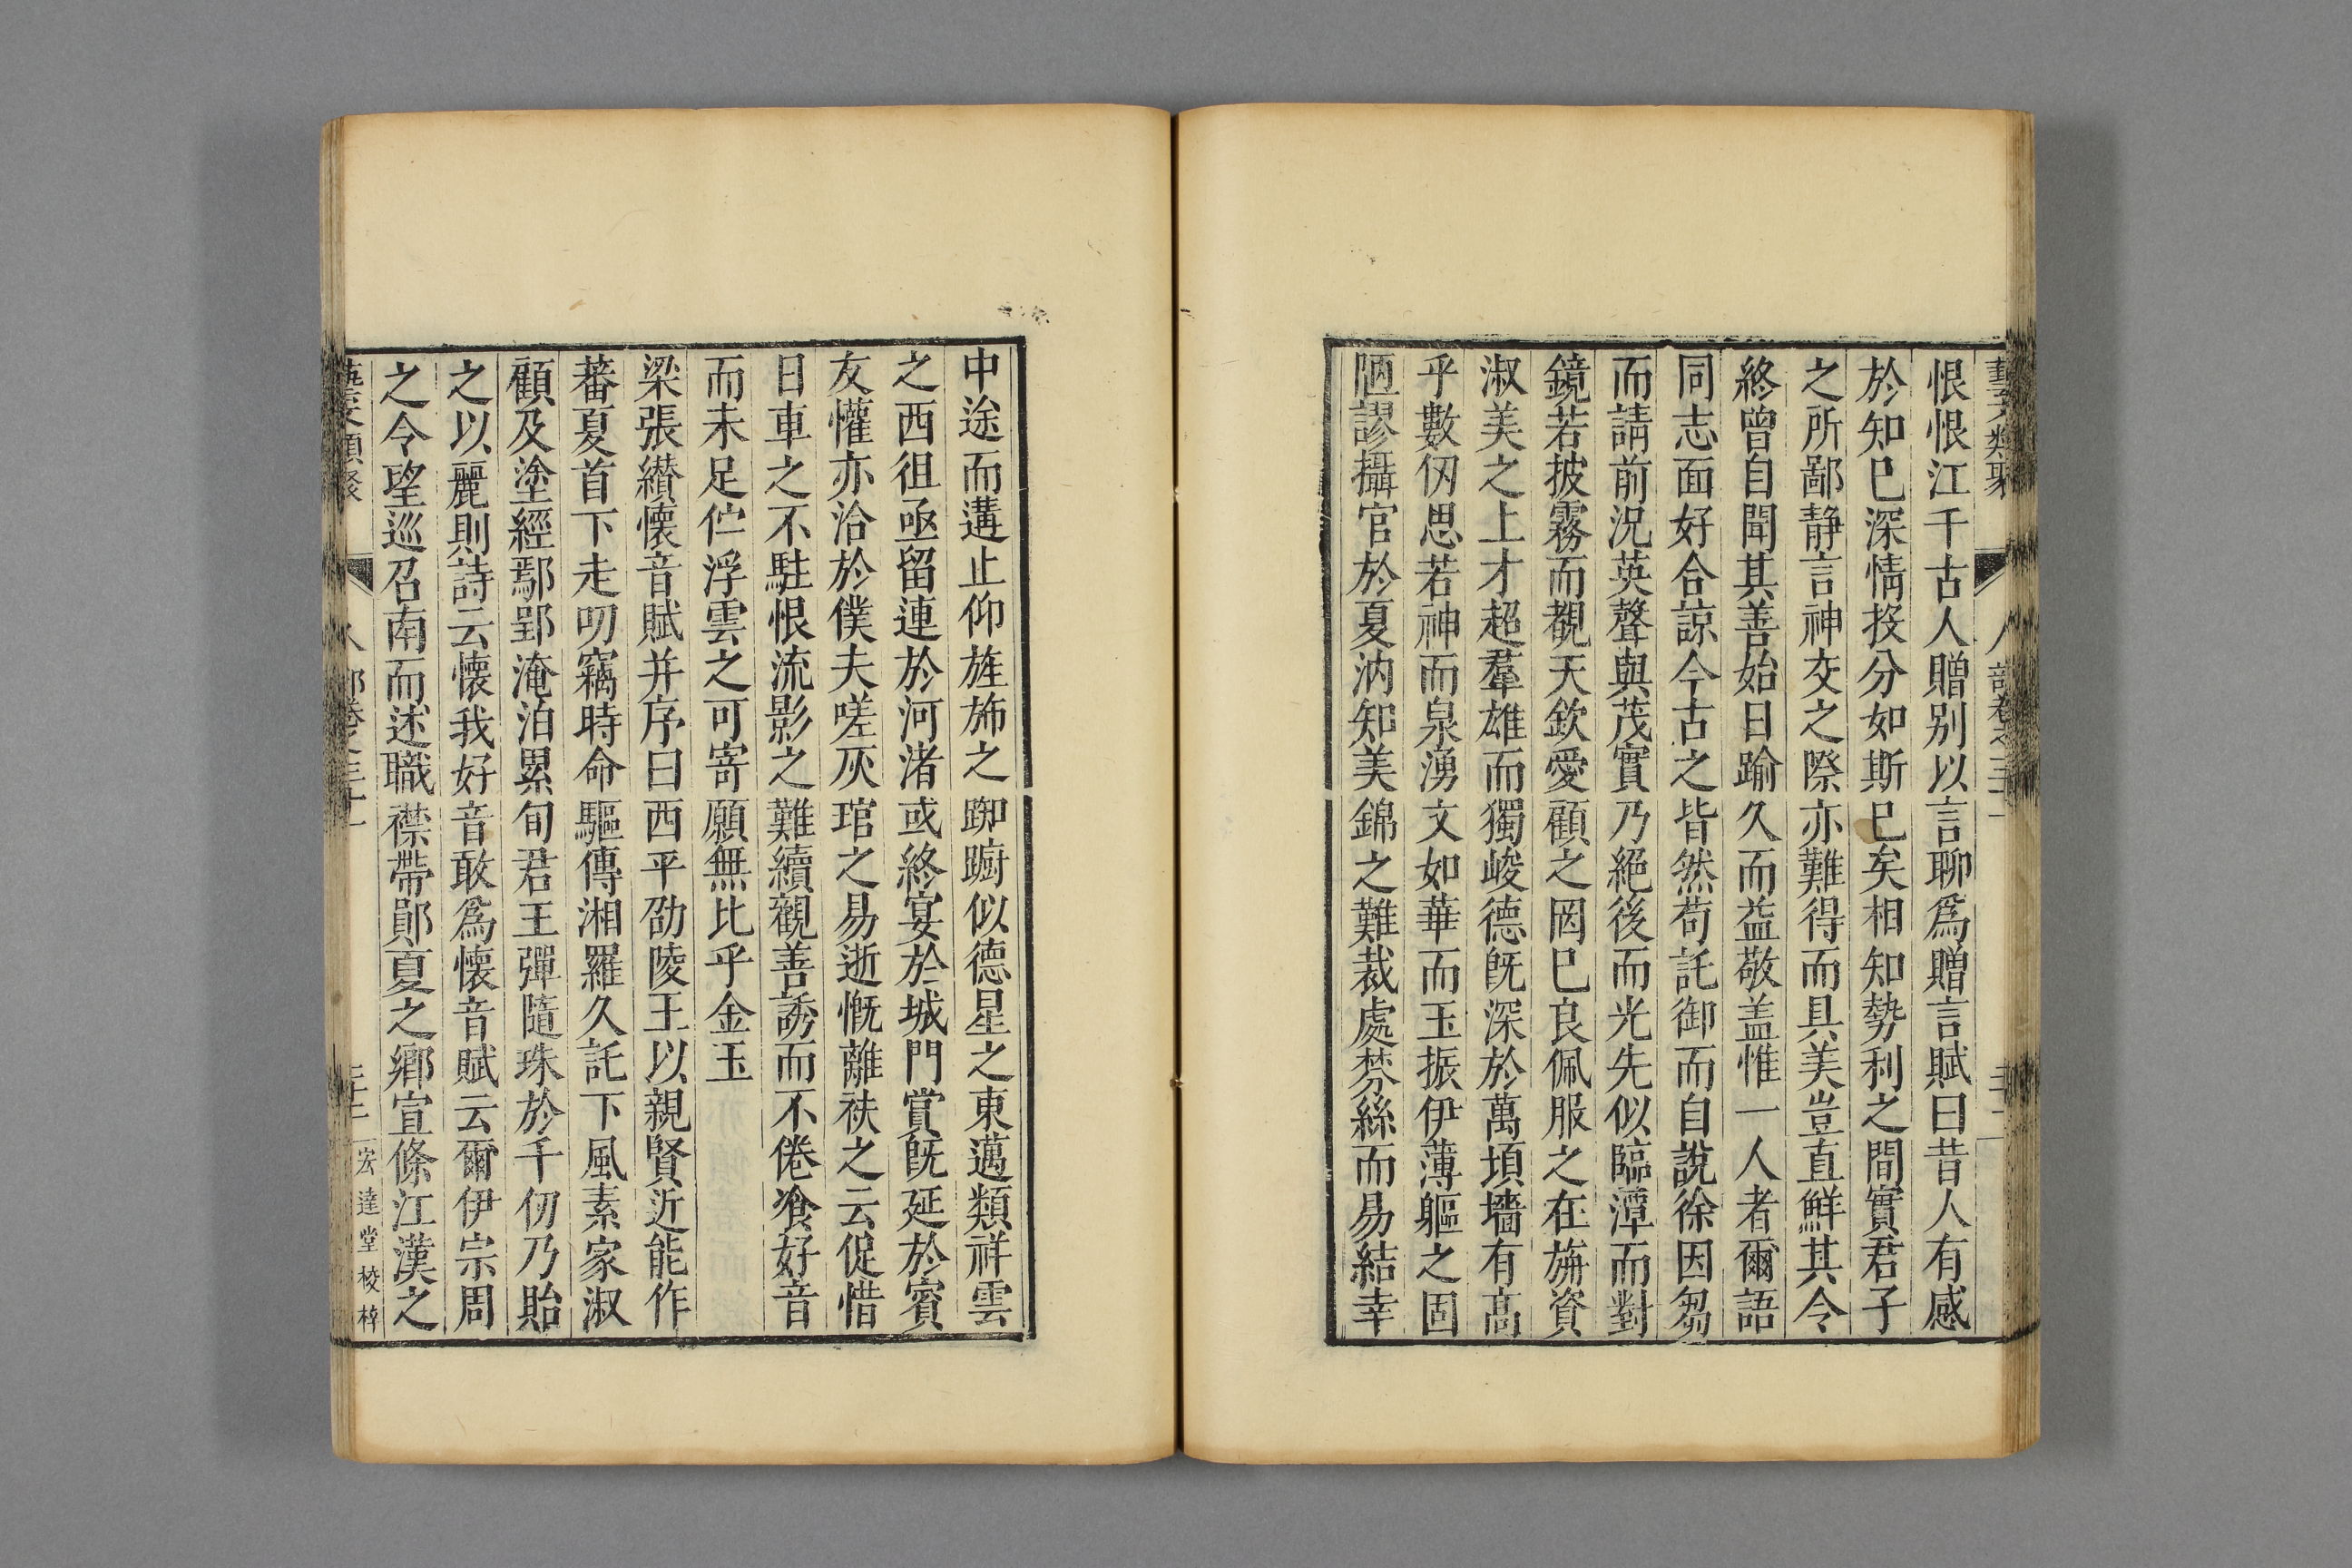 藝文類聚 人部卷之三十一
恨恨江千古人贈别以言聊爲贈言賦曰昔人有感
於知巳深情投分如斯巳矣相知勢利之間實君子
之所鄙静言神交之際亦難得而具美豈直鮮其令
終曾自聞其善始日踰久而益敬盖惟一人者爾語
同志面好合諒今古之皆然苟託御而自說徐因芻
而請前況英聲與茂實乃絕後而光先似臨潭而對
鏡若披霧而覩天欽愛顧之罔巳良佩服之在旃資
淑美之上才超羣雄而獨峻德旣深於萬頃墻有高
乎數仭思若神而泉湧文如華而玉振伊薄軀之固
陋謬攝官於夏汭知美錦之難裁處棼絲而易結幸
中途而遘止仰旌斾之踟躕似德星之東邁類祥雲
之西徂亟留連於河渚或終宴於城門賞旣延於賓
友懽亦洽於僕夫嗟灰琯之易逝慨離袂之云促惜
日車之不駐恨流影之難續觀善誘而不倦飡好音
而未足伫浮雲之可寄願無比乎金玉
梁張纘懷音賦并序曰西平劭陵王以親賢近能作
蕃夏首下走叨竊時命驅傳湘羅久託下風素家淑
顧及塗經鄢郢淹泊累旬君王彈隨珠於千仞乃貽
之以麗則詩云懷我好音敢爲懷音賦云爾伊宗周
之令望巡召南而述職襟帶鄖夏之鄉宣條江漢之
藝文類聚 人部卷之三十一 宏達堂校梓